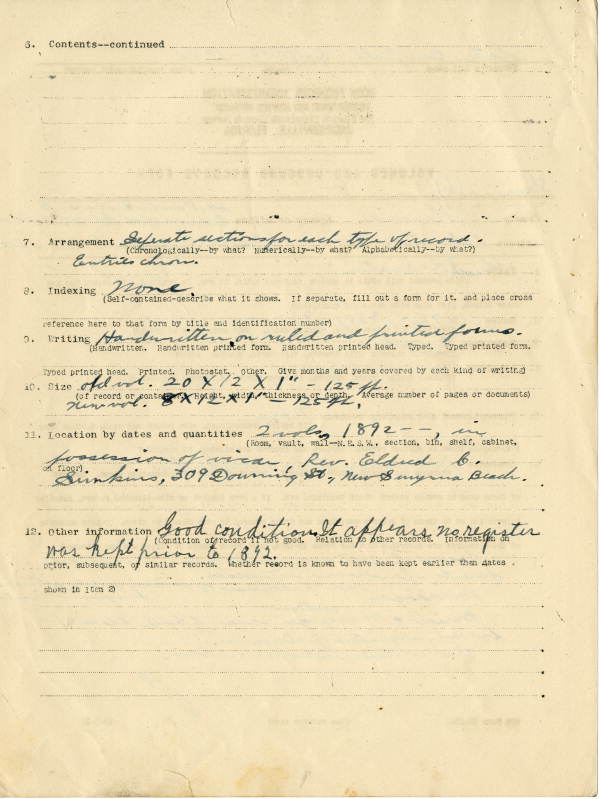 6. Contents--continued
7. Arrangement Seperate sections for each type of record.
(Chronologically--by what? Numerically--by what? Alphabetically--by what?)
Entries chron.
8. Indexing None.
(Self-contained-describe what it shows. If separate, fill out a form for it, and place cross
reference here to that form by title and identification number)
9. Writing Handwritten on ruled and printed forms.
(Handwritten. Handwritten printed form. Handwritten printed head. Typed. Typed printed form.
Typed printed head. Printed. Photostat, other. Give months and years covered by each kind of writing)
10. Size old vol. 20 X 12 X 1" - 125 pp.
(of record or container. Height, width, thickness or depth. Average number of pages or documents)
New vol. 8 X 12 X 1" - 125 pp.
11. Location by dates and quantities 2 vols, 1892--, in
(Room, vault, wall--N.E.S.W., section, bin, shelf, cabinet,
possession of vicar, Rev. Eldred C.
on floor)
Simkins, 309 Downing St., New Smyrna Beach.
12. Other information Good condition. It appears no register
(Condition of record if not good. Relation to other records. Information on
was kept prior to 1892.
prior, subsequent, or similar records. Whether record is known to have been kept earlier than dates
shown in Item 2)